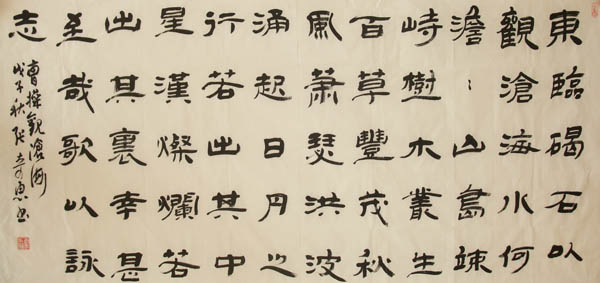 東臨碣石以
觀滄海水何
澹〻山島竦
峙樹木叢生
百草豐茂秋
風蕭瑟洪波
涌起日月之
行若出其中
星漢燦爛若
出其裏幸甚
至哉歌以詠
志
曹操觀滄海
戊子秋张